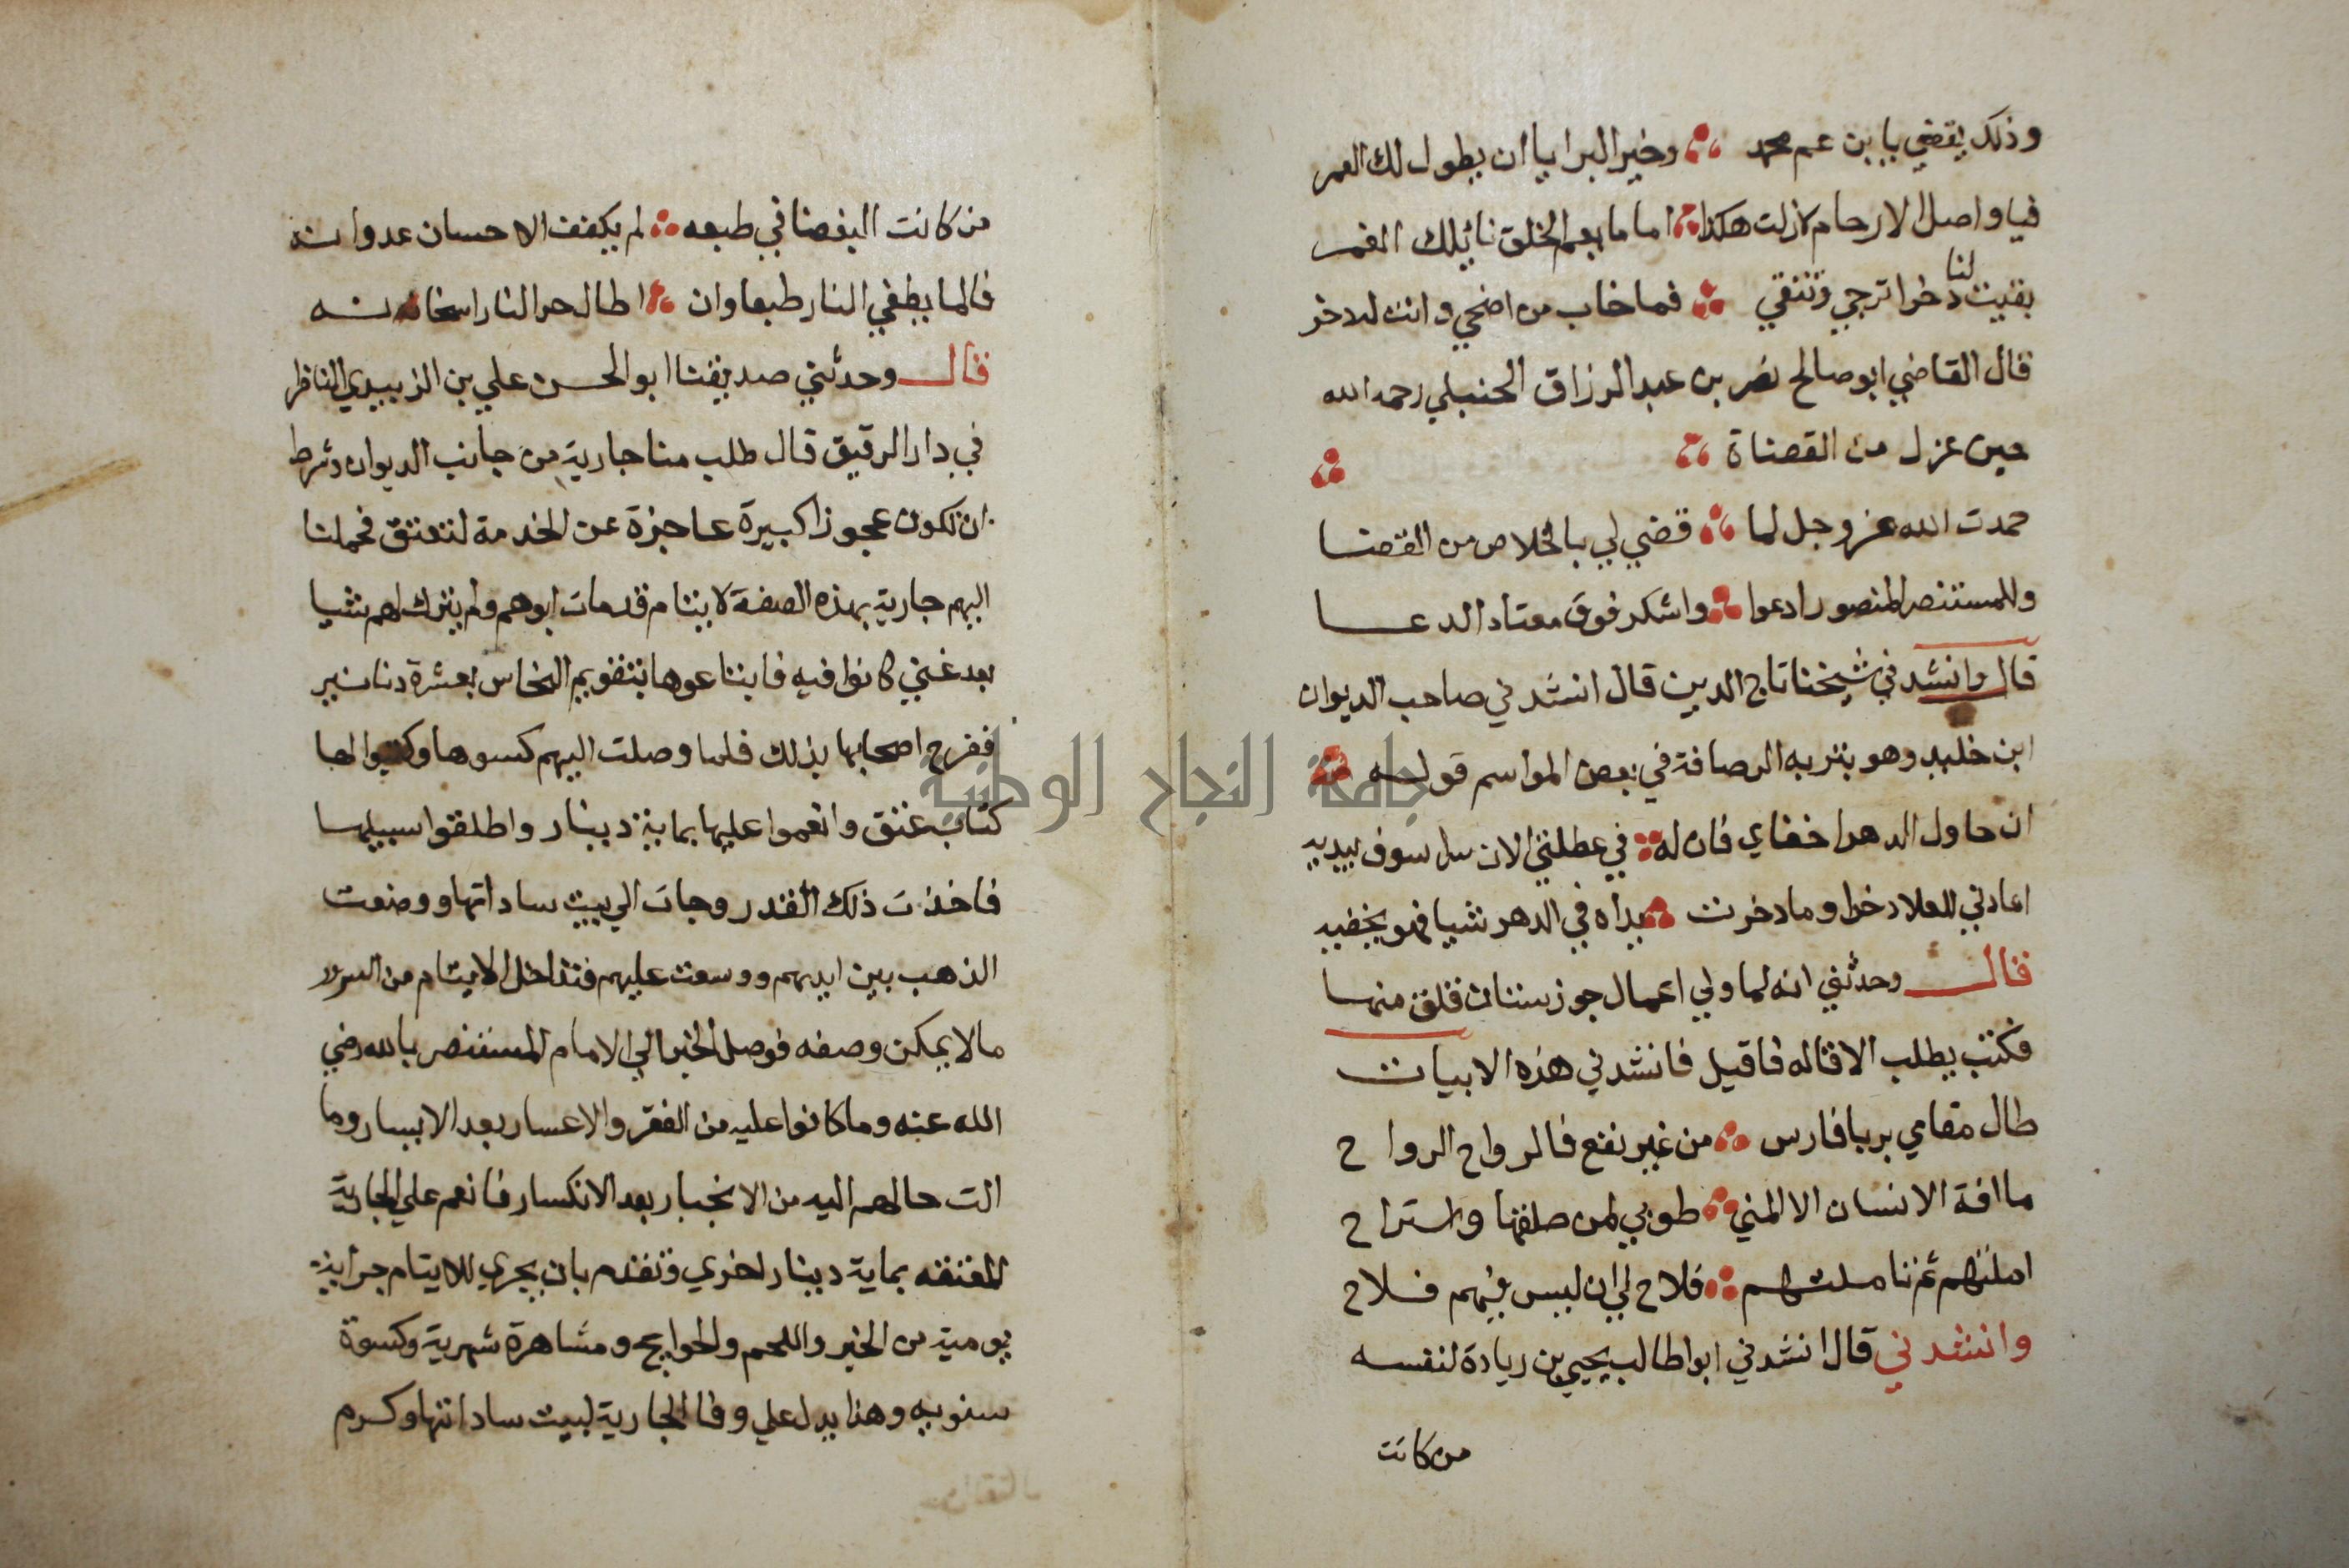 وذلك يقضي يا بن عم محمد وخير البرايا ان يطول لك العمر
فيا واصل الارحام لا زلت هكذا اماما يعم الخلق نائلك الغمر
بقيت لنا ذخرا ترجي وتتقي فما خاب من اضحي وانت له ذخر
قال القاضي ابو صالح نصر بن عبد الرزاق الحنبلي رحمه الله
حين عزل من القضاة
حمدت الله عز وجل لما قضي لي بالخلاص من القضا
وللمستنصر المنصور ادعوا واشكر فوق معتاد الدعا
قال وانشدني شيخنا تاج الدين قال انشدني صاحب الديوان
ابن خليد وهو بتربه الرصافة في بعض المواسم قوله
ان حاول الدهر اخفاي فان له في عطلتي الان سرا سوف يبديه
اعادني للعلا دخرا وما دخرت يداه في الدهر شيا فهو يخفيه
قال وحدثني انه لما ولي اعمال جوزستان قلق منها
فكتب يطلب الاقاله فاقيل فانشدني هذه الابيات
طال مقامي بربا فارس من غير نفع فالرواح الرواح
ما افة الانسان الا المني طوبي لمن طلقها واستراح
املتهم ثم تاملتهم فلاح لي ان ليس فيهم فلاح
وانشدني قال انشدني ابو اطالب يحيي بن زيادة لنفسه
من كانت
من كانت البغضا في طبعه لم يكفف الاحسان عدوانه
فالما يطفي النار طبعا وان اطال حر النار اسخانه
قال وحدثني صديقنا ابو الحسن علي بن الزبيدي الناظر
في دار الرقيق قال طلب منا جارية من جانب الديوان وشرط
ان تكون عجوزا كبيرة عاجزة عن الخدمة لتعتق فحملنا
اليهم جارية بهذه الصفة لايتام قد مات ابوهم ولم يترك لهم شيا
بعد غني كانوا فيه فابتاعوها بتقويم النخاس بعشرة دنانير
ففرح اصحابها بذلك فلما وصلت اليهم كسوها وكتبوا لها
كتاب عتق وانعموا عليها بماية دينار واطلقوا سبيلها
فاخذت ذلك القدر وجات الي بيت ساداتها ووضعت
الذهب بين ايديهم ووسعت عليهم فتداخل الايتام من السرور
ما لا يمكن وصفه فوصل الخبر الي الامام المستنصر بالله رضي
الله عنه وما كانوا عليه من الفقر والاعسار بعد الايسار وما
الت حالهم اليه من الانجبار بعد الانكسار فانعم علي الجارية
المعتقه بماية دينار اخري وتقدم بان يجري للايتام جراية
يومية من الخبز واللحم والحوايج ومشاهرة شهرية وكسوة
سنويه وهذا يدل علي وفا الجارية لبيت ساداتها وكرم
جامعة النجاح الوطنية